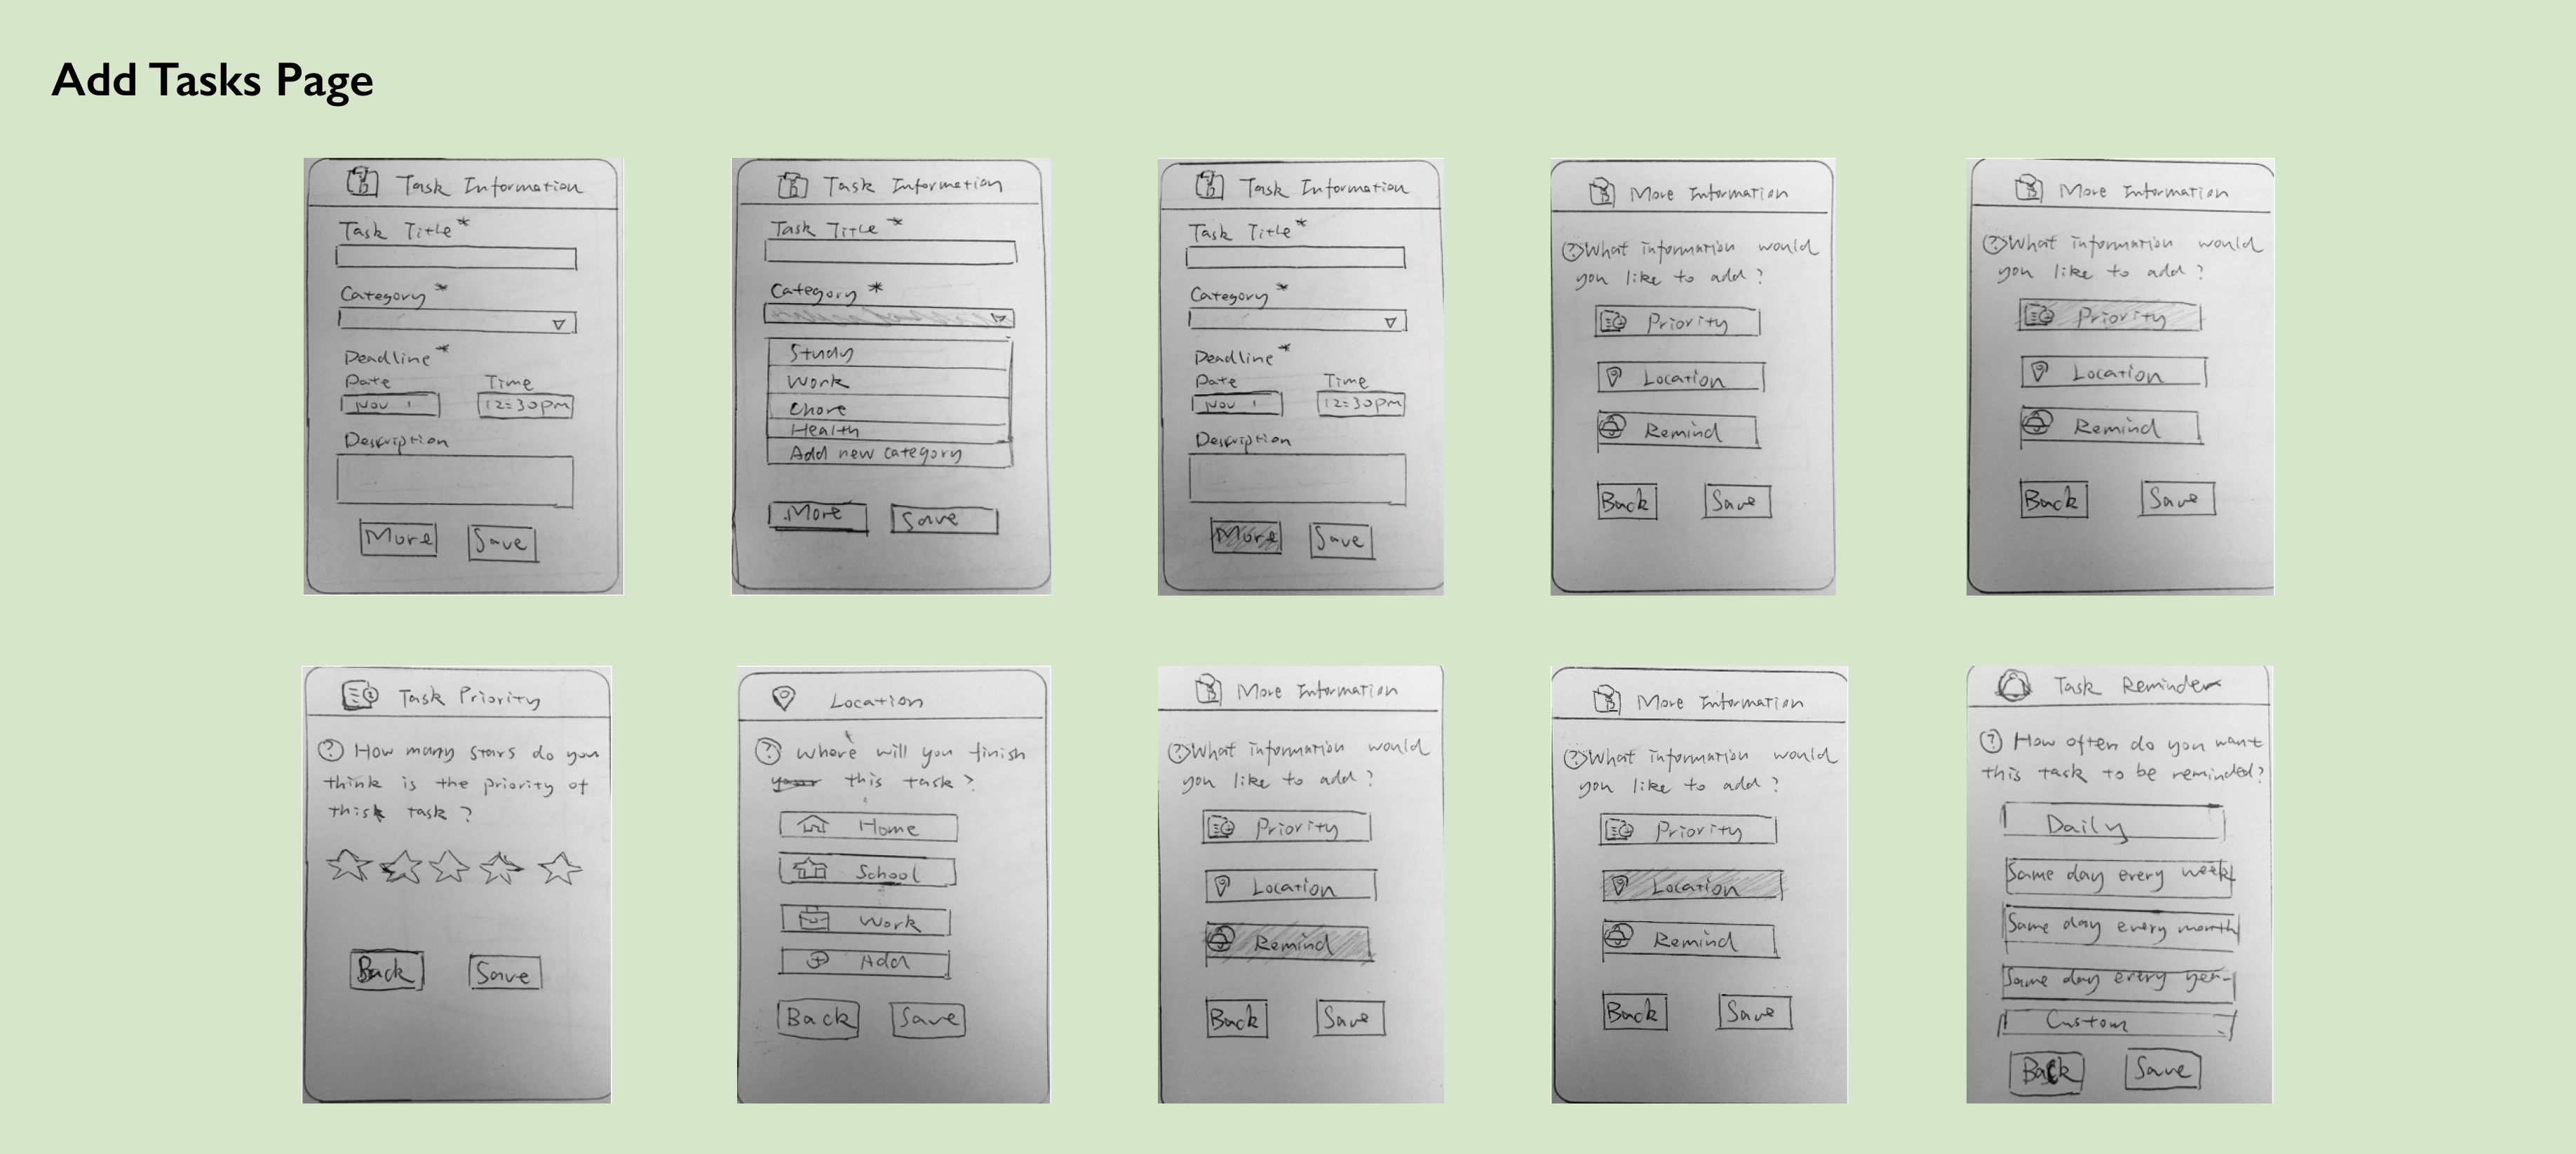 Add Tasks Page
Task Information
Task Title*
Category*
Deadline*
Date Time
Nov 1 12:30pm
Description
More Save
Task Information
Task Title*
Category*
Study
Work
Chore
Health
Add new category
More Save
Task Information
Task Title*
Category*
Deadline*
Date Time
Nov 1 12:30pm
Description
More Save
More Information
? What information would
you like to add?
Priority
Location
Remind
Back Save
More Information
? What information would
you like to add?
Priority
Location
Remind
Back Save
Task Priority
? How many stars do you
think is the priority of
this task?
Back Save
Location
? Where will you finish
this task?
Home
School
Work
Add
Back Save
More Information
? What information would
you like to add?
Priority
Location
Remind
Back Save
More Information
? What information would
you like to add?
Priority
Location
Remind
Back Save
Task Reminder
? How often do you want
this task to be reminded?
Daily
Same day every week
Same day every month
Same day every year
Custom
Back Save